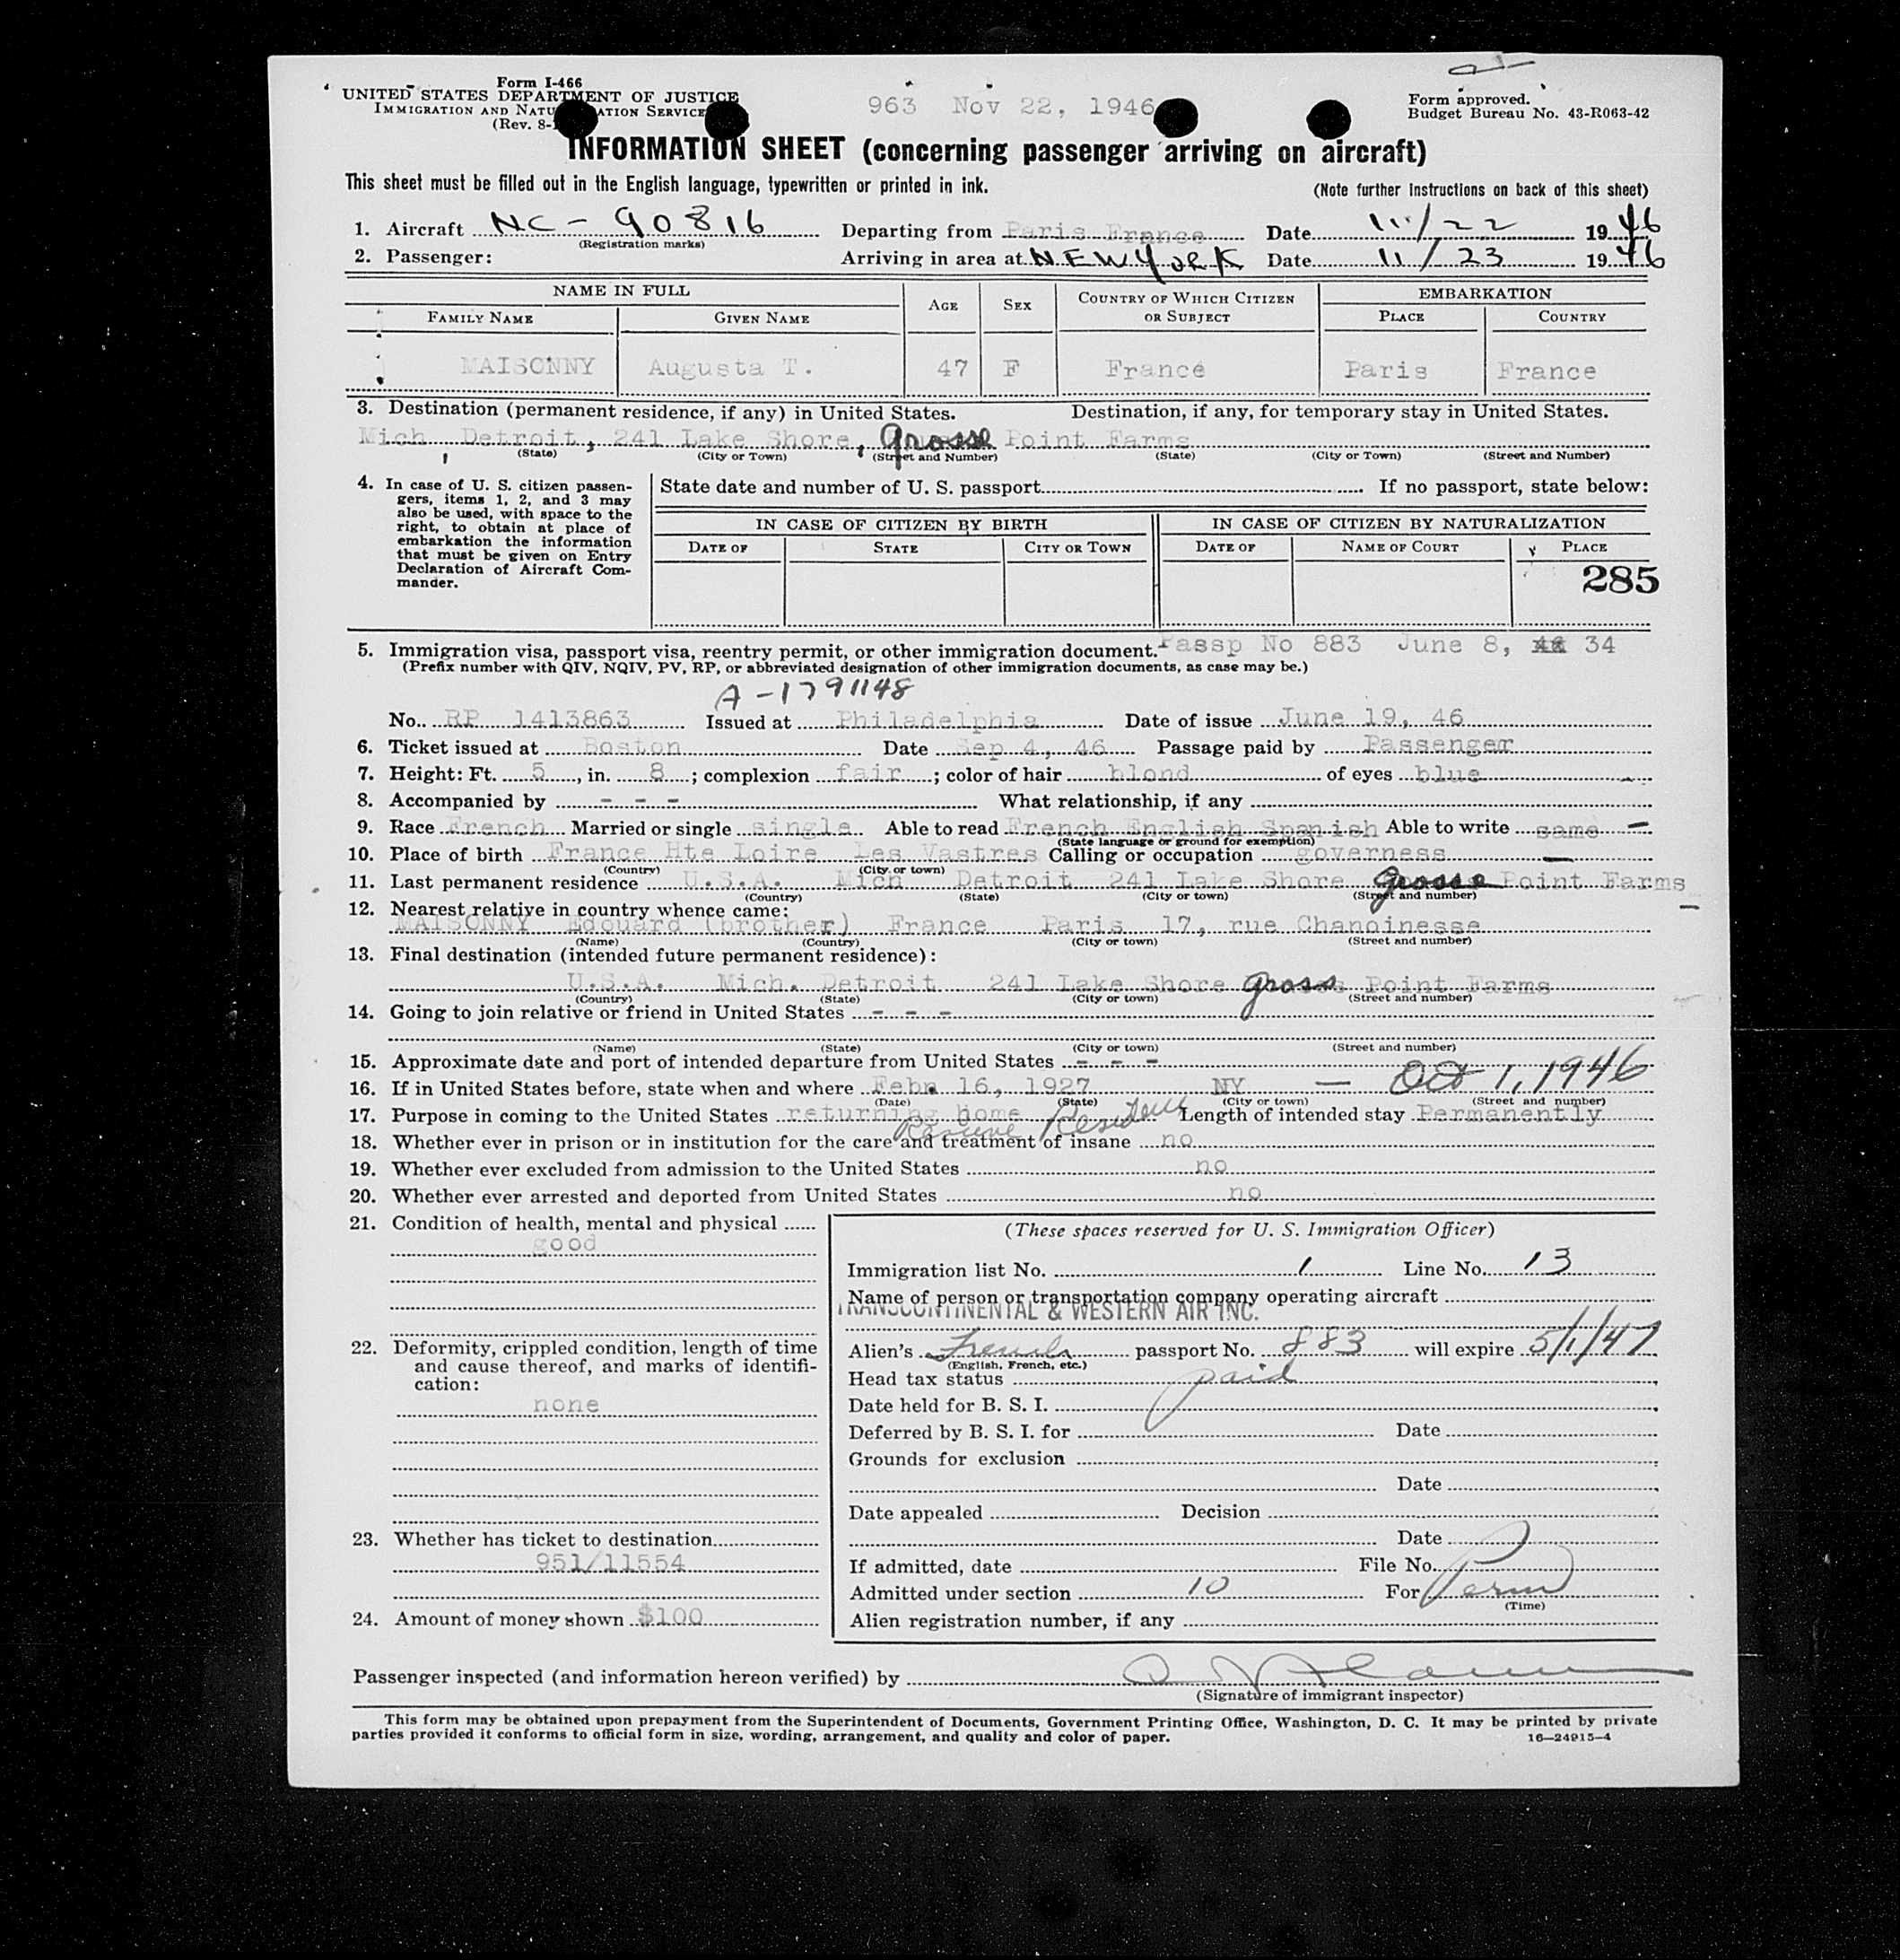 Form I-466
UNITED STATES DEPARTMENT OF JUSTICE
IMMIGRATION AND NATU ATION SERVICE
(Rev. 8-
963 Nov 22, 1946
Form approved.
Budget Bureau No. 43-R063-42
INFORMATION SHEET (concerning passenger arriving on aircraft)
This sheet must be filled out in the English language, typewritten or printed in ink.
(Note further instructions on back of this sheet)
1. Aircraft NC-90816 Departing from Paris France Date 11/22 1946
(Registration marks)
2. Passenger: Arriving in area at NEW YORK Date 11/23 1946
NAME IN FULL AGE SEX COUNTRY OF WHICH CITIZEN OR SUBJECT EMBARKATION
FAMILY NAME GIVEN NAME PLACE COUNTRY
MAISONNY Augusta T. 47 F France Paris France
3. Destination (permanent residence, if any) in United States. Destination, if any, for temporary stay in United States.
Mich, Detroit, 241 Lake Shore, Grosse Point Farms
(State) (City or Town) (Street and Number) (State) (City or Town) (Street and Number)
4. In case of U. S. citizen passen-
gers, items 1, 2, and 3 may
also be used, with space to the
right, to obtain at place of
embarkation the information
that must be given on Entry
Declaration of Aircraft Com-
mander.
State date and number of U. S. passport If no passport, state below:
IN CASE OF CITIZEN BY BIRTH IN CASE OF CITIZEN BY NATURALIZATION
DATE OF STATE CITY OR TOWN DATE OF NAME OF COURT PLACE
285
5. Immigration visa, passport visa, reentry permit, or other immigration document. Passp No 883 June 8, 34
(Prefix number with QIV, NQIV, PV, RP, or abbreviated designation of other immigration documents, as case may be.)
A-1791148
No. RP 1413863 Issued at Philadelphia Date of issue June 19, 46
6. Ticket issued at Boston Date Sep 4, 46 Passage paid by Passenger
7. Height: Ft. 5, in. 8; complexion fair; color of hair blond of eyes blue
8. Accompanied by - - - What relationship, if any
9. Race French Married or single single Able to read French English Spanish Able to write same
(State language or ground for exemption)
10. Place of birth France Hte Loire Les Vastres Calling or occupation governess
(Country) (City or town)
11. Last permanent residence U.S.A. Mich Detroit 241 Lake Shore Grosse Point Farms
(Country) (State) (City or town) (Street and number)
12. Nearest relative in country whence came:
MAISONNY Edouard (brother) France Paris 17, rue Chanoinesse
(Name) (Country) (City or town) (Street and number)
13. Final destination (intended future permanent residence):
U.S.A. Mich. Detroit 241 Lake Shore Gross Point Farms
(Country) (State) (City or town) (Street and number)
14. Going to join relative or friend in United States - - -
(Name) (State) (City or town) (Street and number)
15. Approximate date and port of intended departure from United States - - -
16. If in United States before, state when and where Febr. 16, 1927 NY — Oct 1, 1946
(Date) (State) (City or town) (Street and number)
17. Purpose in coming to the United States returning home Residence Length of intended stay Permanently
18. Whether ever in prison or in institution for the care and treatment of insane no
19. Whether ever excluded from admission to the United States no
20. Whether ever arrested and deported from United States no
21. Condition of health, mental and physical
good
22. Deformity, crippled condition, length of time
and cause thereof, and marks of identifi-
cation:
none
23. Whether has ticket to destination
951/11554
24. Amount of money shown $100
(These spaces reserved for U. S. Immigration Officer)
Immigration list No. 1 Line No. 13
Name of person or transportation company operating aircraft
TRANSCONTINENTAL & WESTERN AIR INC.
Alien's French passport No. 883 will expire 5/1/47
(English, French, etc.)
Head tax status paid
Date held for B. S. I.
Deferred by B. S. I. for Date
Grounds for exclusion
Date
Date appealed Decision
Date
If admitted, date File No.
Admitted under section 10 For Perm
(Time)
Alien registration number, if any
Passenger inspected (and information hereon verified) by
(Signature of immigrant inspector)
This form may be obtained upon prepayment from the Superintendent of Documents, Government Printing Office, Washington, D. C. It may be printed by private
parties provided it conforms to official form in size, wording, arrangement, and quality and color of paper.
16—24915-4